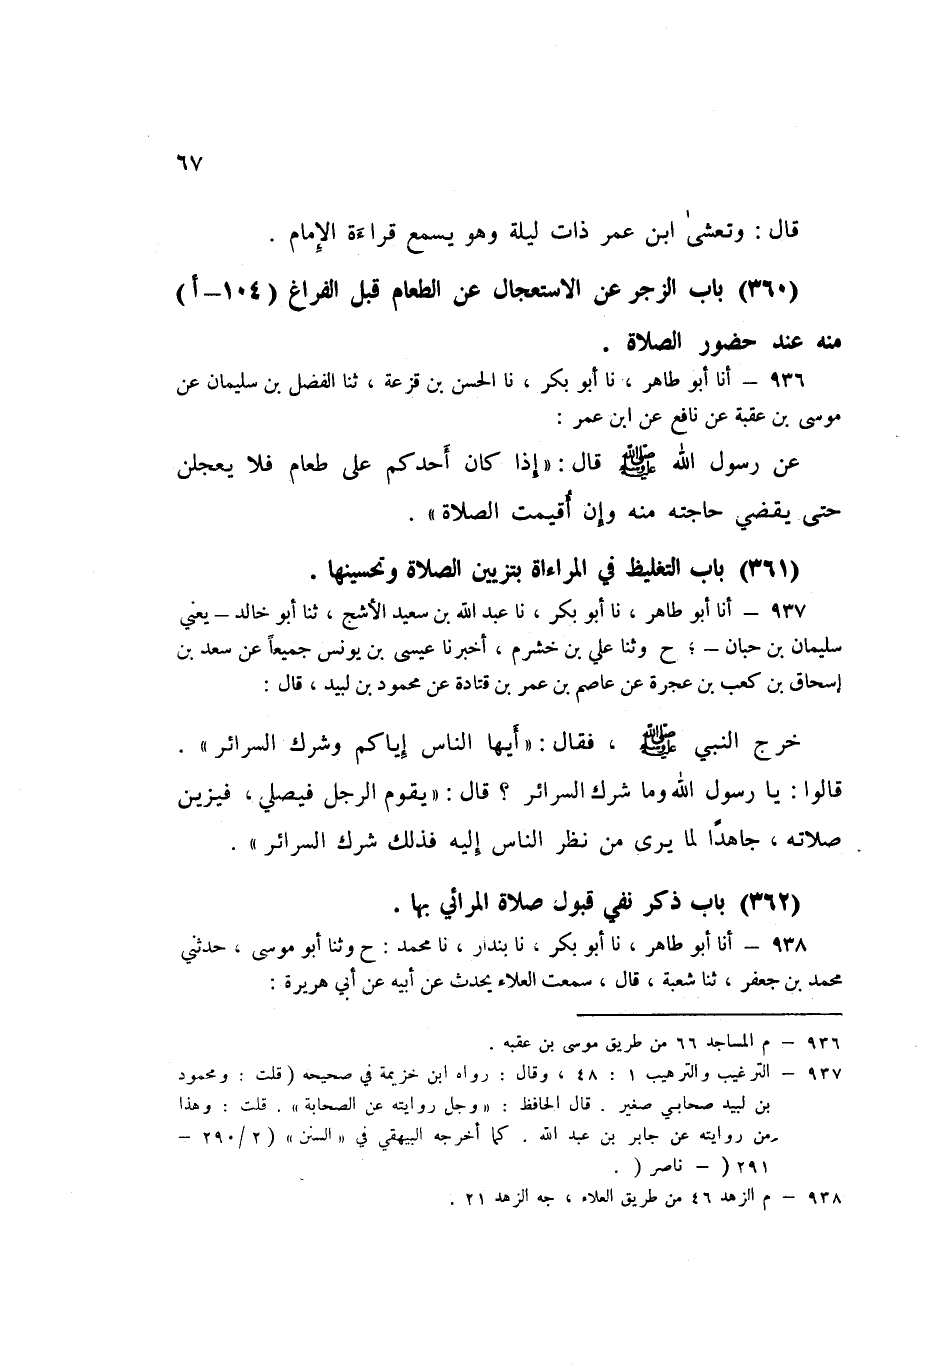 ٦٧
قال : وتعشى ابن عمر ذات ليلة وهو يسمع قراءة الإمام .
(٣٦٠) باب الزجر عن الاستعجال عن الطعام قبل الفراغ ( ١٠٤ – أ )
منه عند حضور الصلاة .
٩٣٦ – أنا أبو طاهر ، نا أبو بكر ، نا الحسن بن قزعة ، ثنا الفضل بن سليمان عن
موسى بن عقبة عن نافع عن ابن عمر :
عن رسول الله ﷺ قال : «إذا كان أحدكم على طعام فلا يعجلن
حتى يقضي حاجته منه وإن أُقيمت الصلاة» .
(٣٦١) باب التغليظ في المراءاة بتزيين الصلاة وتحسينها .
٩٣٧ – أنا أبو طاهر ، نا أبو بكر ، نا عبد الله بن سعيد الأشج ، ثنا أبو خالد – يعني
سليمان بن حبان – ؛ ح وثنا علي بن خشرم ، أخبرنا عيسى بن يونس جميعاً عن سعد بن
إسحاق بن كعب بن عجرة عن عاصم بن عمر بن قتادة عن محمود بن لبيد ، قال :
خرج النبي ﷺ ، فقال : «أيها الناس إياكم وشرك السرائر» .
قالوا : يا رسول الله وما شرك السرائر ؟ قال : «يقوم الرجل فيصلي ، فيزين
صلاته ، جاهدًا لما يرى من نظر الناس إليه فذلك شرك السرائر» .
(٣٦٢) باب ذكر نفي قبول صلاة المرائي بها .
٩٣٨ – أنا أبو طاهر ، نا أبو بكر ، نا بندار ، نا محمد : ح وثنا أبو موسى ، حدثني
محمد بن جعفر ، ثنا شعبة ، قال ، سمعت العلاء يحدث عن أبيه عن أبي هريرة :
٩٣٦ – م المساجد ٦٦ من طريق موسى بن عقبه .
٩٣٧ – الترغيب والترهيب ١ : ٤٨ ، وقال : رواه ابن خزيمة في صحيحه ( قلت : ومحمود
بن لبيد صحابي صغير . قال الحافظ : «وجل روايته عن الصحابة» . قلت : وهذا
من روايته عن جابر بن عبد الله . كما أخرجه البيهقي في «السنن» ( ٢ /٢٩٠ –
٢٩١ ( – ناصر ( .
٩٣٨ – م الزهد ٤٦ من طريق العلاء ، جه الزهد ٢١ .